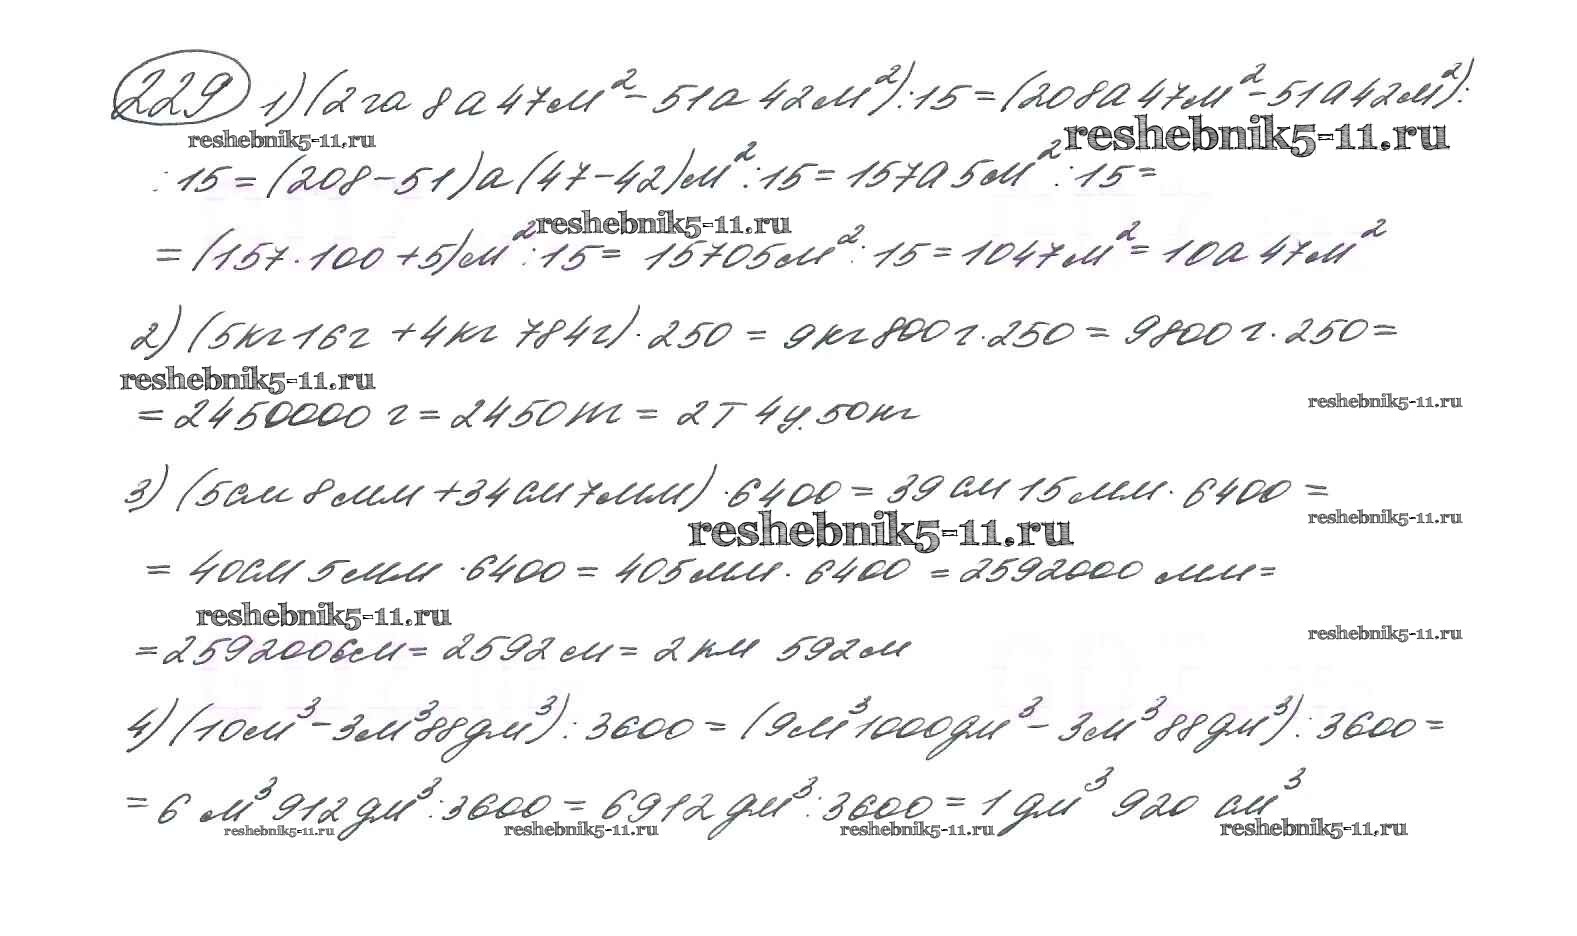 229 1) (2 га 8 а 47 м² - 51 а 42 м²) : 15 = (208 а 47 м² - 51 а 42 м²) :
reshebnik5-11.ru reshebnik5-11.ru
: 15 = (208 - 51) а (47 - 42) м² : 15 = 157 а 5 м² : 15 =
reshebnik5-11.ru
= (157 · 100 + 5) м² : 15 = 15705 м² : 15 = 1047 м² = 10 а 47 м²
2) (5 кг 16 г + 4 кг 784 г) · 250 = 9 кг 800 г · 250 = 9800 г · 250 =
reshebnik5-11.ru reshebnik5-11.ru
= 2450000 г = 2450 кг = 2 т 4 ц 50 кг
3) (5 см 8 мм + 34 см 7 мм) · 6400 = 39 см 15 мм · 6400 =
reshebnik5-11.ru reshebnik5-11.ru
= 40 см 5 мм · 6400 = 405 мм · 6400 = 2592000 мм =
reshebnik5-11.ru reshebnik5-11.ru
= 259200 см = 2592 м = 2 км 592 м
4) (10 м³ - 3 м³ 88 дм³) : 3600 = (9 м³ 1000 дм³ - 3 м³ 88 дм³) : 3600 =
= 6 м³ 912 дм³ : 3600 = 6912 дм³ : 3600 = 1 дм³ 920 см³
reshebnik5-11.ru reshebnik5-11.ru reshebnik5-11.ru reshebnik5-11.ru